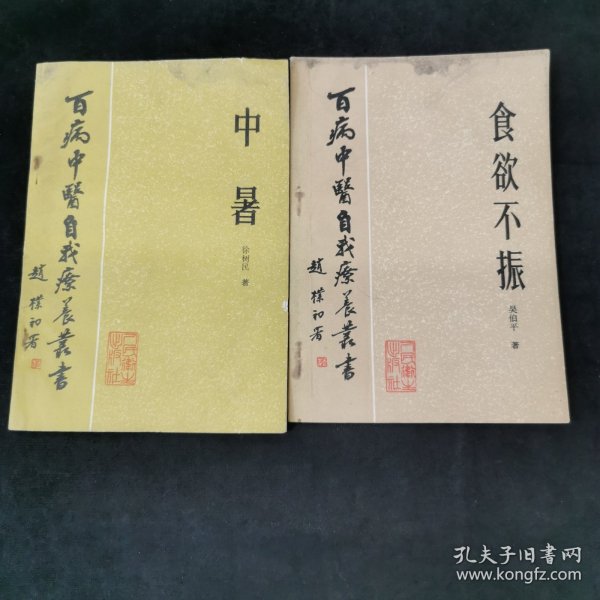 百病中醫自我療養叢書
趙樸初署
中暑
徐树民 著
人民衛生出版社
百病中醫自我療養叢書
趙樸初署
食欲不振
吴伯平 著
人民衛生出版社
孔夫子旧书网
www.kongfz.com